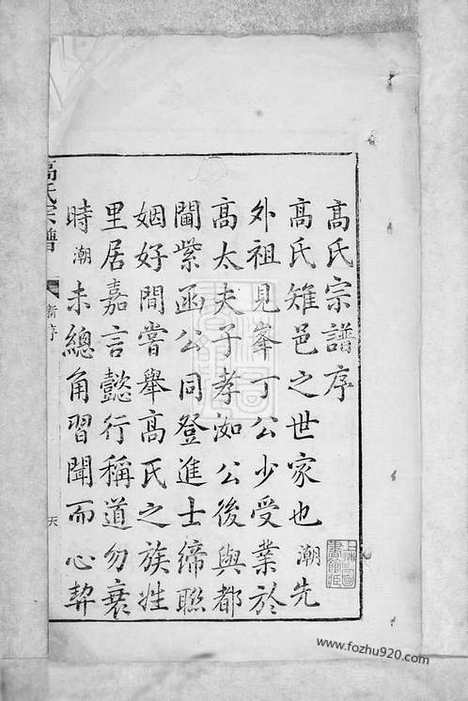 高氏宗譜序
高氏雉邑之世家也潮先
外祖見峯丁公少受業於
高太夫子孝如公後與都
閫紫函公同登進士締聯
姻好間嘗舉高氏之族姓
里居嘉言懿行稱道勿衰
時潮未總角習聞而心契
高氏宗譜
新序
天
www.fozhu920.com